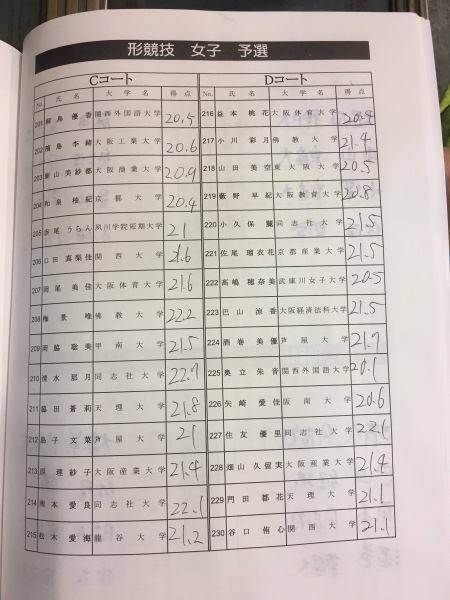 形競技 女子 予選
Cコート
No. 氏名 大学名 得点
201 島 優香 関西外国語大学 20.5
202 濱島 李緒 大阪工業大学 20.6
203 東山 美紗都 大阪商業大学 20.9
204 和泉 柚紀 京都大学 20.4
205 赤尾 うらん 夙川学院短期大学 21
206 口田 真梨佳 関西大学 21.6
207 岡尾 美佳 大阪体育大学 21.6
208 梅景 唯 佛教大学 22.2
209 岡脇 聡美 甲南大学 21.5
210 清水 那月 同志社大学 22.7
211 脇田 蒼莉 天理大学 21.8
212 島子 文菜 芦屋大学 21
213 原 理紗子 大阪産業大学 21.4
214 南本 愛良 同志社大学 22.1
215 松木 愛海 龍谷大学 21.2
Dコート
No. 氏名 大学名 得点
216 益本 桃花 大阪体育大学 20.4
217 小川 彩月 佛教大学 21.4
218 山田 美空 東大阪大学 20.5
219 薮野 早紀 大阪教育大学 20.8
220 小久保 麗 同志社大学 21.5
221 佐尾 瑠衣花 京都産業大学 21.5
222 高嶋 穂奈美 武庫川女子大学 20.5
223 巴山 涼香 大阪経済法科大学 21.5
224 酒巻 美優 芦屋大学 21.7
225 奥立 朱音 関西外国語大学 20.1
226 矢崎 愛佳 阪南大学 20.6
227 住友 優里 同志社大学 22.1
228 畑山 久留実 大阪産業大学 21.4
229 門田 都花 天理大学 21.1
230 谷口 侑心 関西大学 21.1